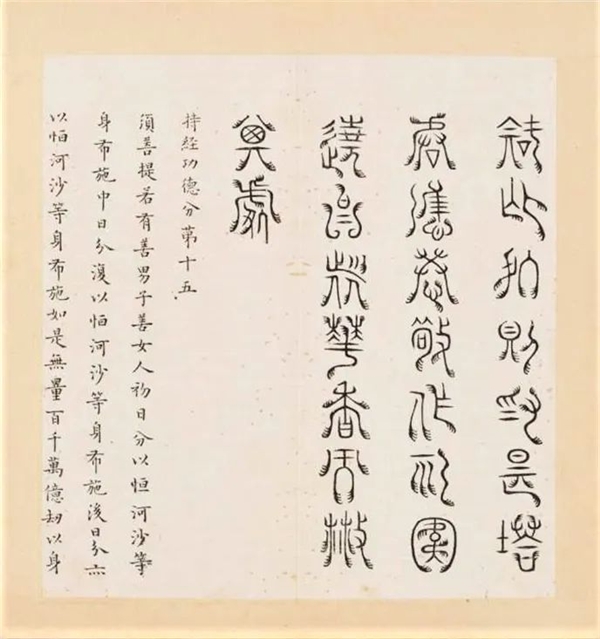 知此處則為是塔
皆應恭敬作禮圍
遶以諸華香而散
其處
持經功德分第十五
須菩提若有善男子善女人初日分以恒河沙等
身布施中日分復以恒河沙等身布施後日分亦
以恒河沙等身布施如是無量百千萬億劫以身